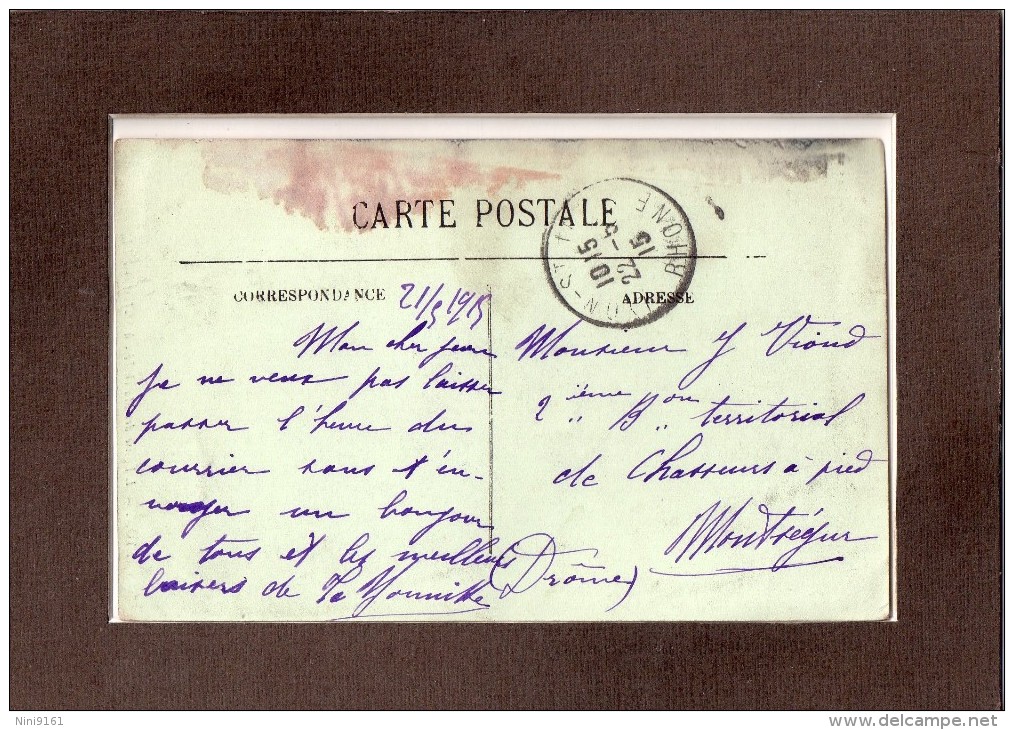 CARTE POSTALE
LYON-ST RHONE
10 15
22 -5
15
CORRESPONDANCE
21/5 1915
Mon cher
Je ne veux pas laisser
passer l'heure du
courrier sans t'en-
voyer un bonjour
de tous et les meilleurs
baisers de Ta
ADRESSE
Monsieur J Vioud
2 ième B on territorial
de Chasseurs à pied
Montségur
(Drôme)
Nini9161
delcampe.net